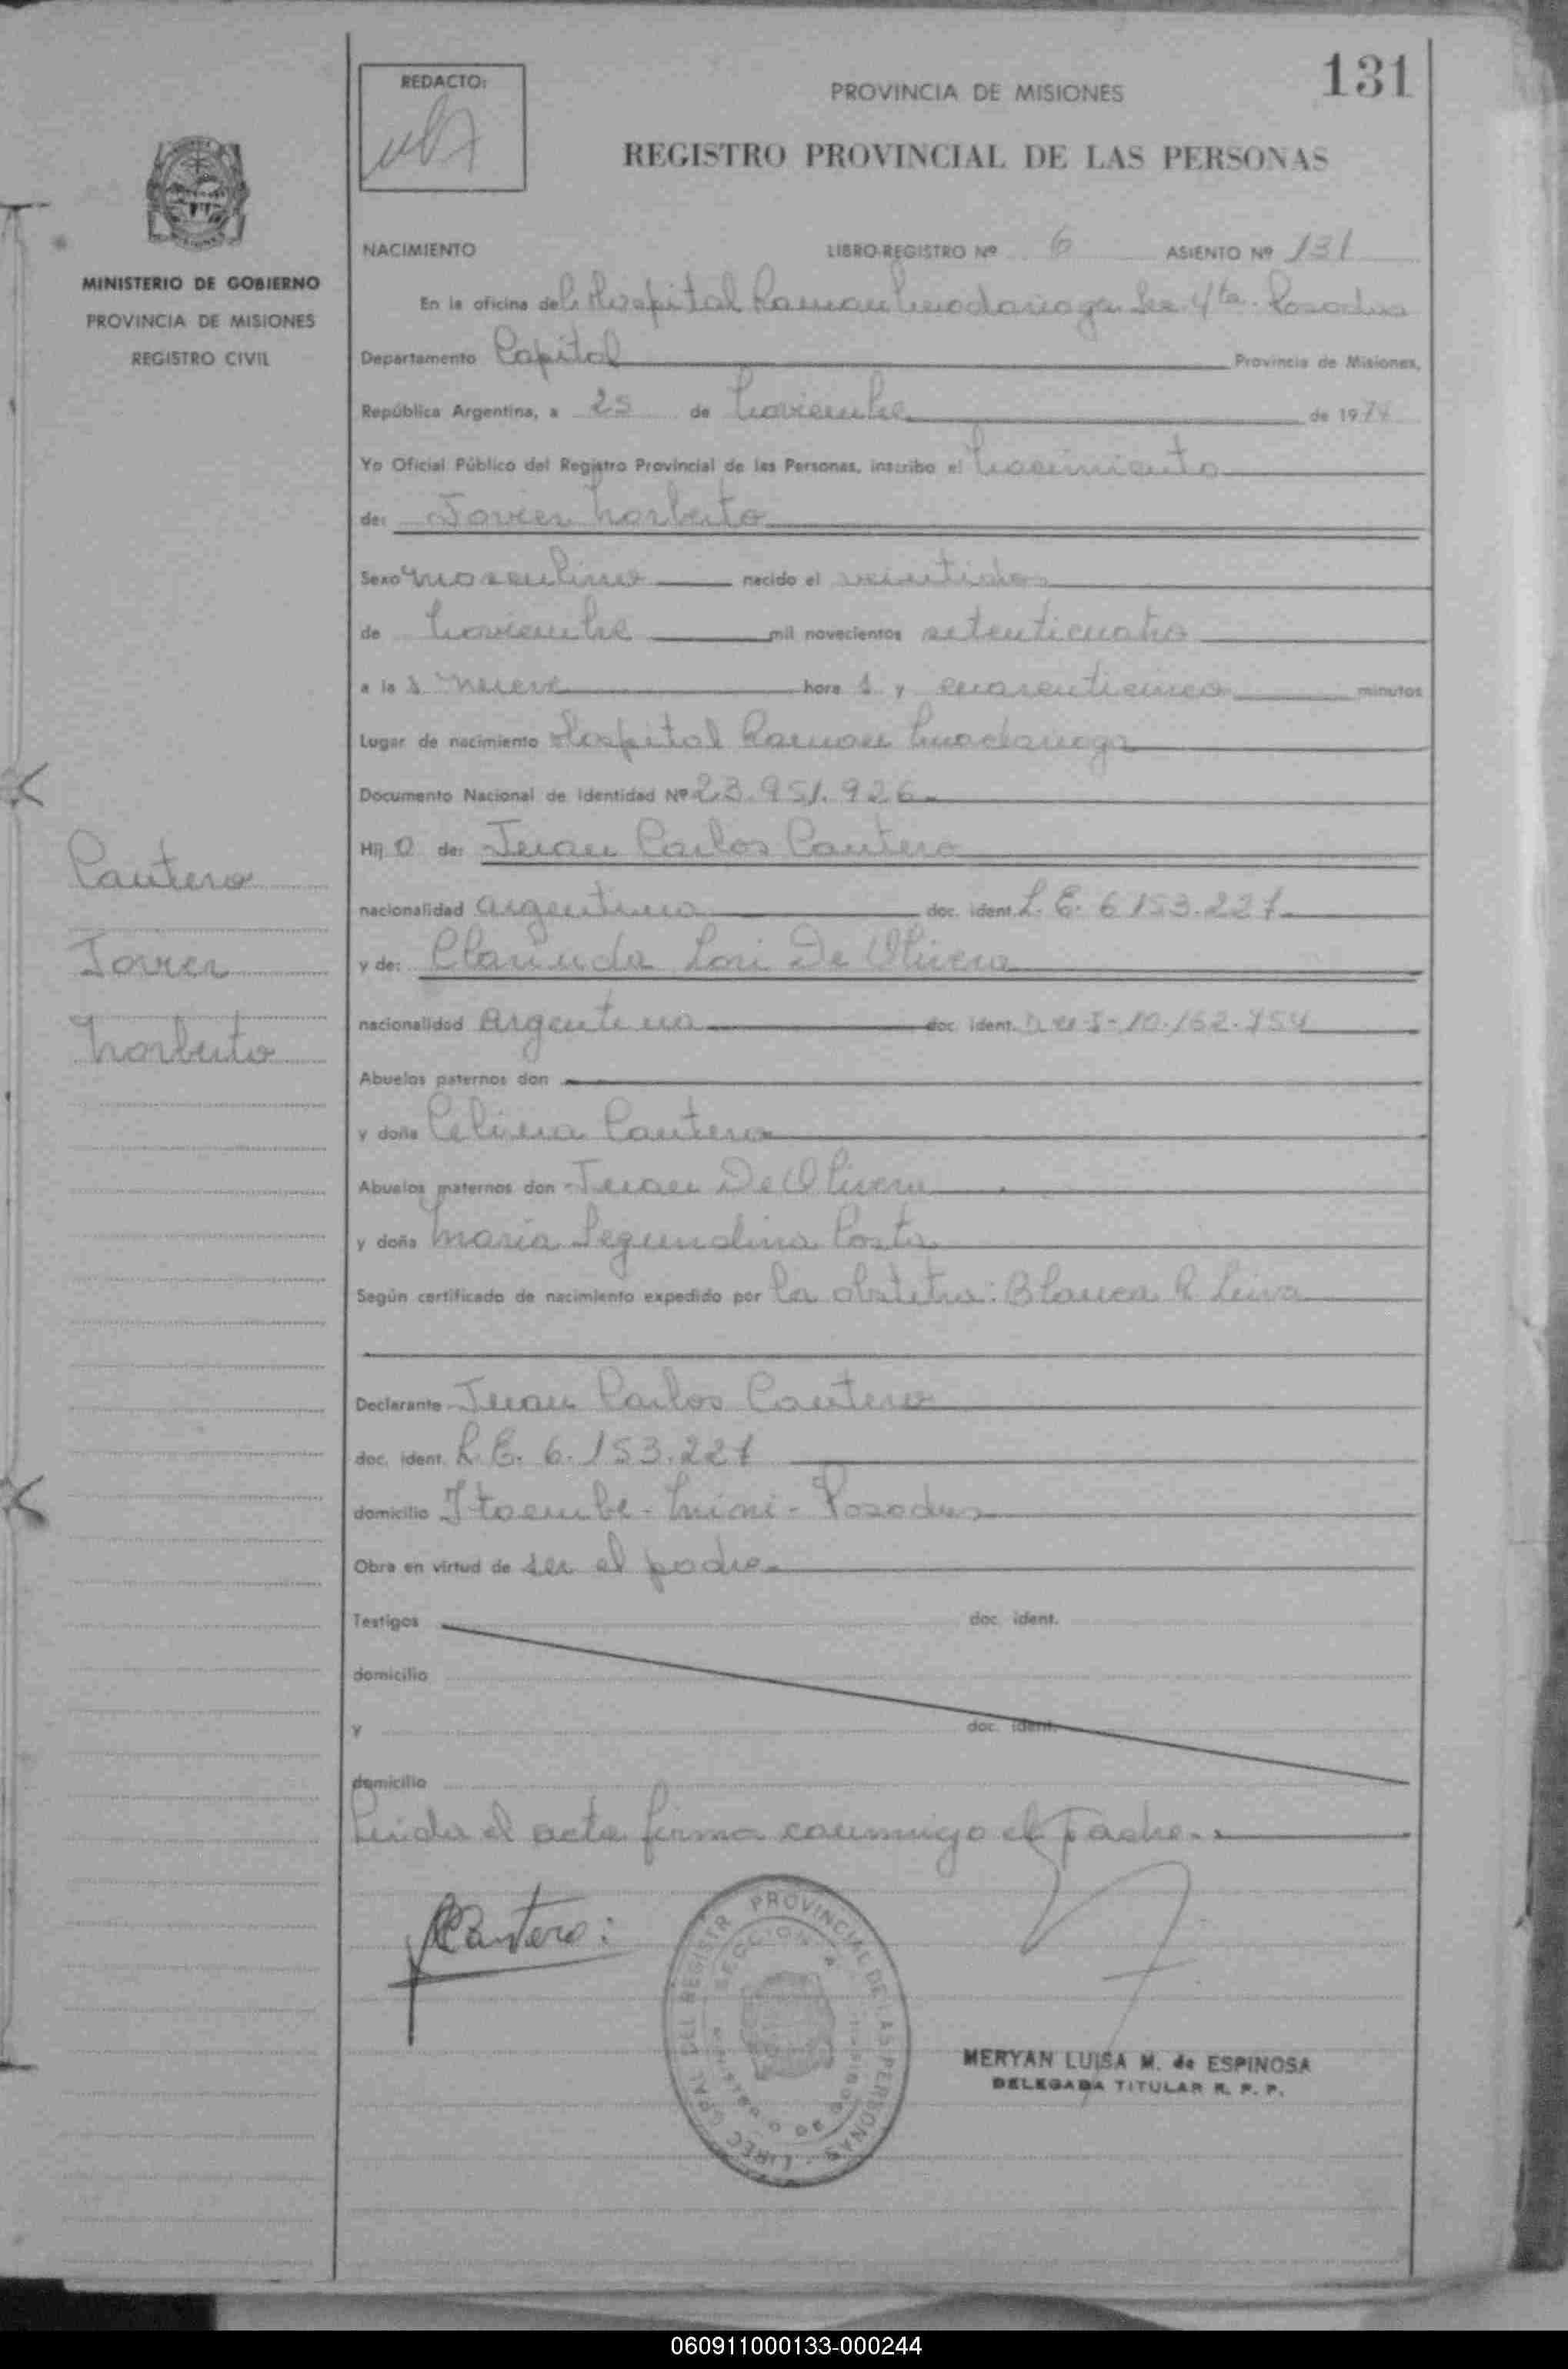 131
REDACTO:
PROVINCIA DE MISIONES
REGISTRO PROVINCIAL DE LAS PERSONAS
MINISTERIO DE GOBIERNO
PROVINCIA DE MISIONES
REGISTRO CIVIL
NACIMIENTO LIBRO-REGISTRO Nº 6 ASIENTO Nº 131
En la oficina del Hospital Ramon Madariaga Sec 4ta. Posadas
Departamento Capital Provincia de Misiones,
República Argentina, a 25 de Noviembre de 1974
Yo Oficial Público del Registro Provincial de las Personas, inscribo el Nacimiento
de: Javier Norberto
Sexo masculino nacido el veintidos
de Noviembre mil novecientos setenticuatro
a la s nueve hora s y cuarenticinco minutos
Lugar de nacimiento Hospital Ramon Madariaga
Documento Nacional de Identidad Nº 23.951.926
Hij o de: Juan Carlos Cantero
nacionalidad argentina doc. ident. L.E. 6.153.227
y de: Lori De Olivera
nacionalidad Argentina doc. ident. 10.162.754
Abuelos paternos don
y doña Celina Cantero
Abuelos maternos don Juan De Olivera
y doña Maria Segundina Costa
Según certificado de nacimiento expedido por la obstetra: Blanca R Leiva
Declarante Juan Carlos Cantero
doc. ident. L.E. 6.153.227
domicilio Itaembe - Mini - Posadas
Obra en virtud de ser el padre
Testigos doc. ident.
domicilio
y doc. ident.
domicilio
Leida el acta firma conmigo el Padre.
Cantero
Javier
Norberto
Cantero:
PROVINCIAL DE LAS PERSONAS
SECCION
MERYAN LUISA M. de ESPINOSA
DELEGADA TITULAR R. P. P.
060911000133-000244